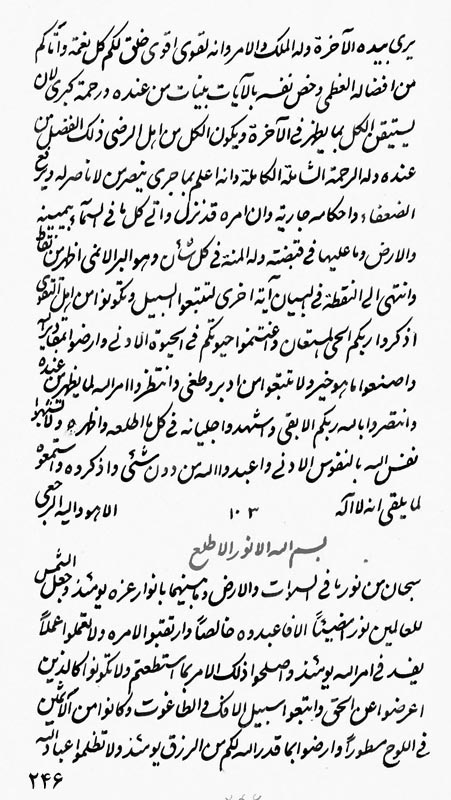 يرى بيده الآخرة وله الملك والامر وانه لقوى اقوى خلق لكم كل نعمة واتاكم
من افضاله العظمى وخص نفسه بالآيات بينات من عنده ورحمة كبرى لان
يستيقن الكل بما يظهر فى الآخرة ويكون الكل من اهل الرضى ذلك الفضل من
عنده وله الرحمة الشاملة الكاملة وانه اعلم بما جرى ينصر من لا ناصر له ويرفع
الضعفاء واحكامه جارية وان امره قد نزل واتى كل ما فى السماء بيمينه
والارض وما عليها فى قبضته وله المنة فى كل شأن وهو البر الابهى اظهر من نقطة
وانتهى الى النقطة فى البيان آية اخرى لتتبعوا السبيل وتكونوا من اهل التقوى
اذكروا ربكم الحى المستعان وغنتموا حيوتكم فى الحيوة الادنى وارضوا بمقاديره
واصنعوا ما هو خير ولا تتبعوا من ادبر وطغى وانتظروا امر الله لما يظهر من عنده
وانتصروا بالله ربكم الابقى واشهدوا جليانه فى كل ما اطلعه واظهره ولا تشبهوا
نفس الله بالنفوس الادنى واعبدوا الله من دون شئى واذكروه واستمعوه
لما يلقى انه لا اله ١٠٣ الا هو واليه الرجعى
بسم الله الانور الاطلع
سبحان من نور ما فى السموات والارض وما بينهما بانوار عزه يومئذ وجعل الشمس
للعالمين نورا مضيئاً الا فاعبدوه خالصاً وارتقبوا الامره ولا تعملوا عملاً
يفسد فى امر الله يومئذ واصلحوا ذلك الامر بما استطعتم ولا تكونوا كالذين
اعرضوا عن الحق واتبعوا سبيل الافك فى الطاغوت وكانوا من الآثمين
فى اللوح مسطوراً وارضوا بما قدر الله لكم من الرزق يومئذ ولا تظلموا عباد الله
٢٤۶